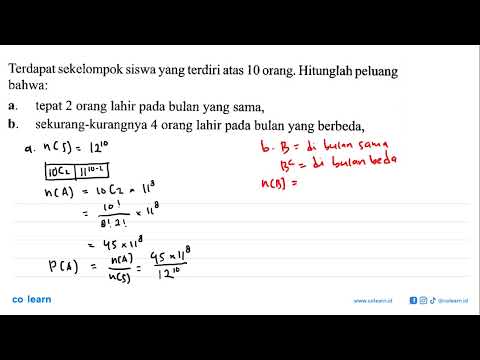 Terdapat sekelompok siswa yang terdiri atas 10 orang. Hitunglah peluang
bahwa:
a. tepat 2 orang lahir pada bulan yang sama,
b. sekurang-kurangnya 4 orang lahir pada bulan yang berbeda,
a. n(S) = 12^10
10C2 | 11^10-2
n(A) = 10C2 × 11^8
= 10! / 8! 2! × 11^8
= 45 × 11^8
P(A) = n(A) / n(S) = 45 × 11^8 / 12^10
b. B = di bulan sama
B^c = di bulan beda
n(B) =
co learn
www.colearn.id
@colearn.id